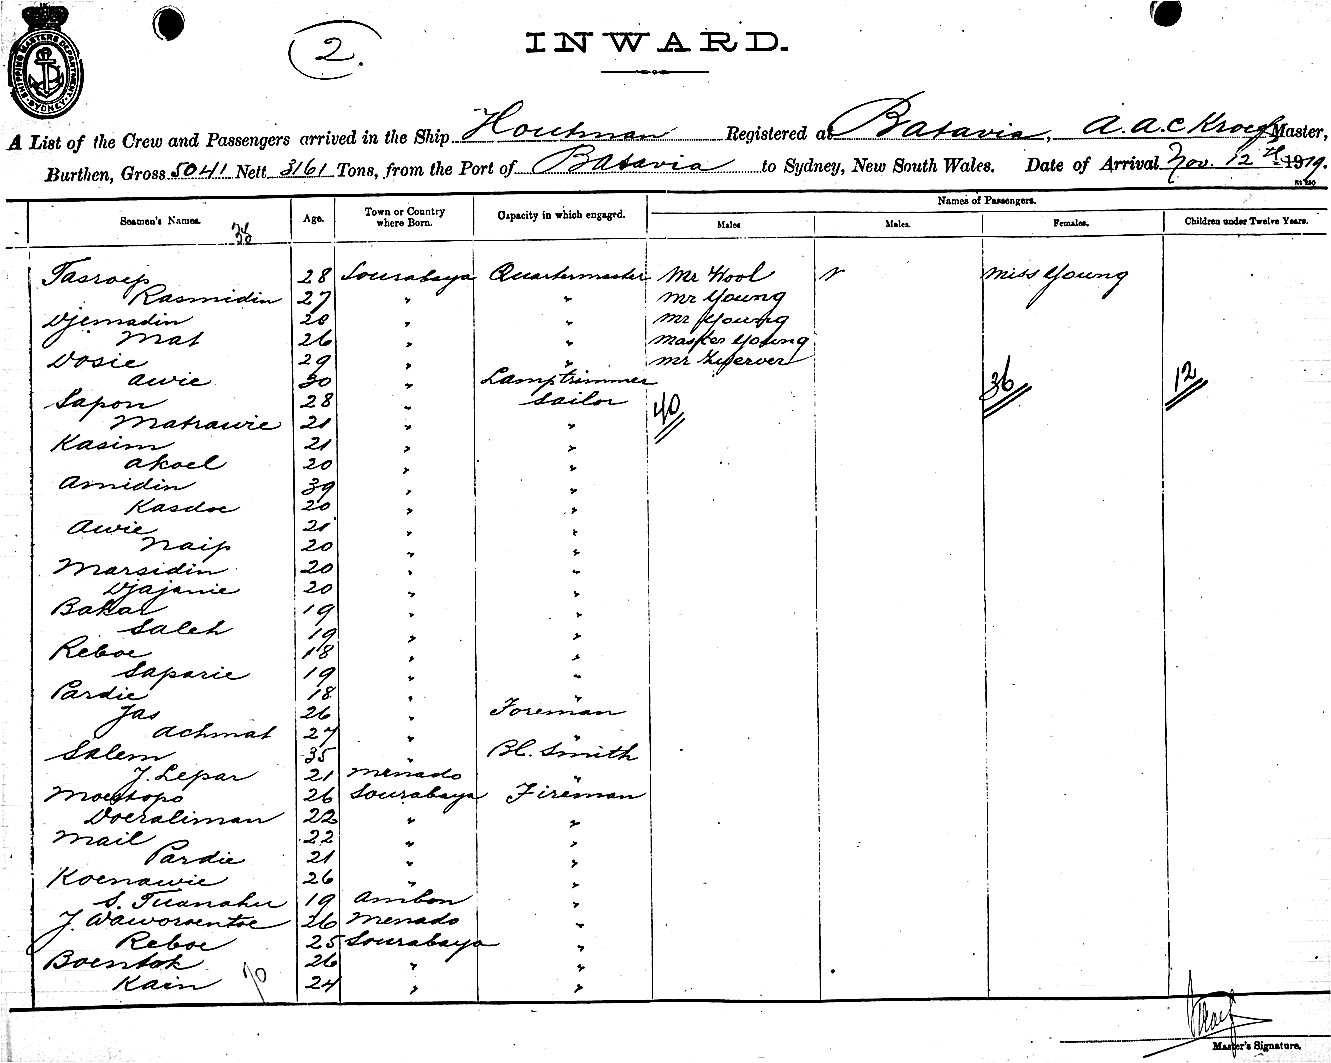 SHIPPING MASTERS DEPARTMENT SYDNEY
2.
INWARD.
A List of the Crew and Passengers arrived in the Ship Houtman Registered at Batavia, A.A.C Kroef Master,
Burthen, Gross 5041 Nett 3161 Tons, from the Port of Batavia to Sydney, New South Wales. Date of Arrival Nov. 12th 1919.
Names of Passengers.
Seamen's Names. Age. Town or Country where Born. Capacity in which engaged. Males Males. Females. Children under Twelve Years.
38
Tasroep 28 Sourabaya Quartermaster Mr Hool Miss Young
Rasmidin 27 " " Mr Young
Djemadin 20 " " Mr Young
Mat 26 " " Master Young
Dosie 29 " " Mr
Awie 30 " Lamptrimmer 36 12
Sapon 28 " Sailor 40
Matrawie 21 " "
Kasim 21 " "
Akoel 20 " "
Amidin 39 " "
Kasdoe 20 " "
Awie 21 " "
Naip 20 " "
Marsidin 20 " "
Djajanie 20 " "
Bakar 19 " "
Saleh 19 " "
Reboe 18 " "
Saparie 19 " "
Pardie 18 " "
Jas 26 " Foreman
Achmat 27 " "
Salem 35 " Bl. Smith
J. Lepar 21 Menado "
Moestopo 26 Sourabaya Fireman
Doeraliman 22 " "
Mail 22 " "
Pardie 21 " "
Koenawie 26 " "
S. Tuanahu 19 Ambon "
J. Waworoentoe 26 Menado "
Reboe 25 Sourabaya "
Boentok 26 " "
Kain 24 " "
70
Master's Signature.